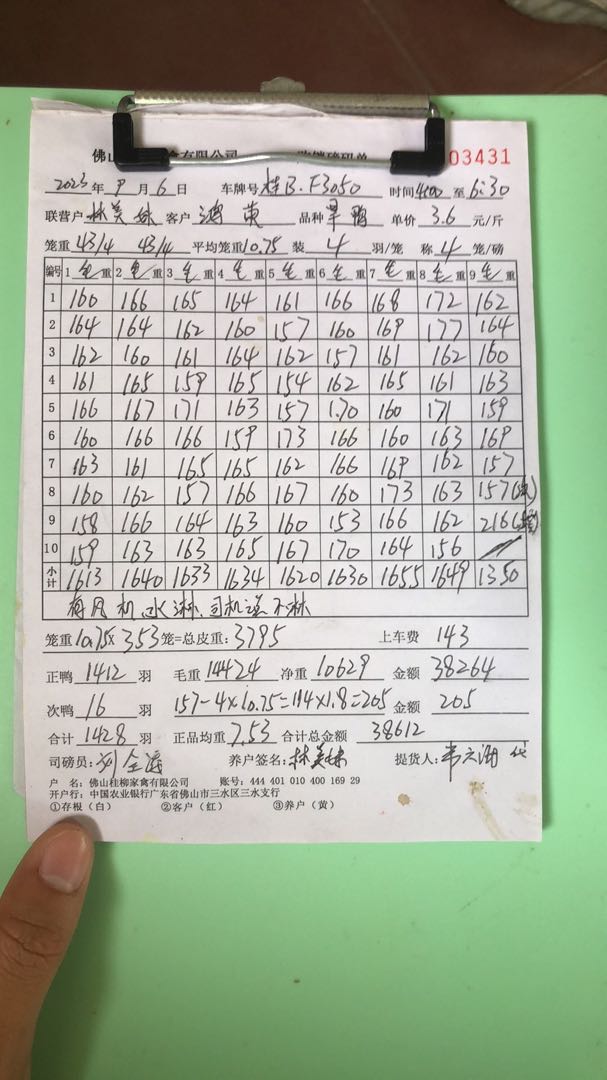 佛山 有限公司 03431
2023年9月6日 车牌号桂B.F3050 时间4:00至6:30
联营户林美妹 客户鸿英 品种旱鸭 单价3.6元/斤
笼重43/4 43/4 平均笼重10.75 装4羽/笼 称4笼/磅
编号 1毛重 2毛重 3毛重 4毛重 5毛重 6毛重 7毛重 8毛重 9毛重
1 160 166 165 164 161 166 168 172 162
2 164 164 162 160 157 160 169 177 164
3 162 160 161 164 162 157 161 162 160
4 161 165 159 165 154 162 165 161 163
5 166 167 171 163 157 170 160 171 159
6 160 166 166 159 173 166 160 163 169
7 163 161 165 165 162 166 169 162 157
8 160 162 157 166 167 160 173 163 157
9 158 166 164 163 160 153 166 162 216
10 159 163 163 165 167 170 164 156
小计 1613 1640 1633 1634 1620 1630 1655 1649 1350
有风机,水淋,司机说不淋
笼重10.75×353笼=总皮重:3795 上车费143
正鸭1412羽 毛重14424 净重10629 金额38264
次鸭16羽 157-4×10.75=114×1.8=205 金额205
合计1428羽 正品均重7.53 合计总金额38612
司磅员: 养户签名:林美妹 提货人:
户 名:佛山桂柳家禽有限公司 账号:444 401 010 400 169 29
开户行:中国农业银行广东省佛山市三水区三水支行
①存根(白) ②客户(红) ③养户(黄)